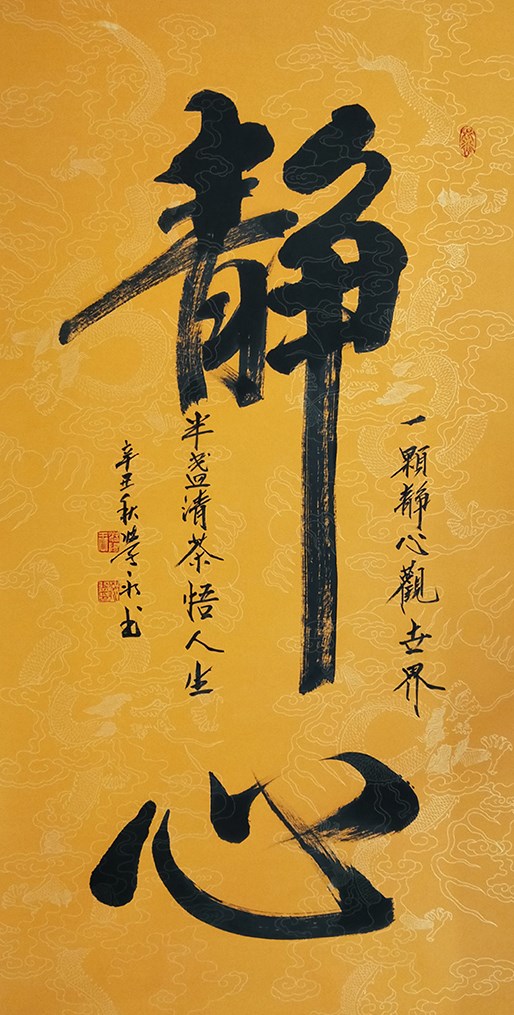 静心
一顆静心觀世界
半盏清茶悟人生
辛丑秋
书